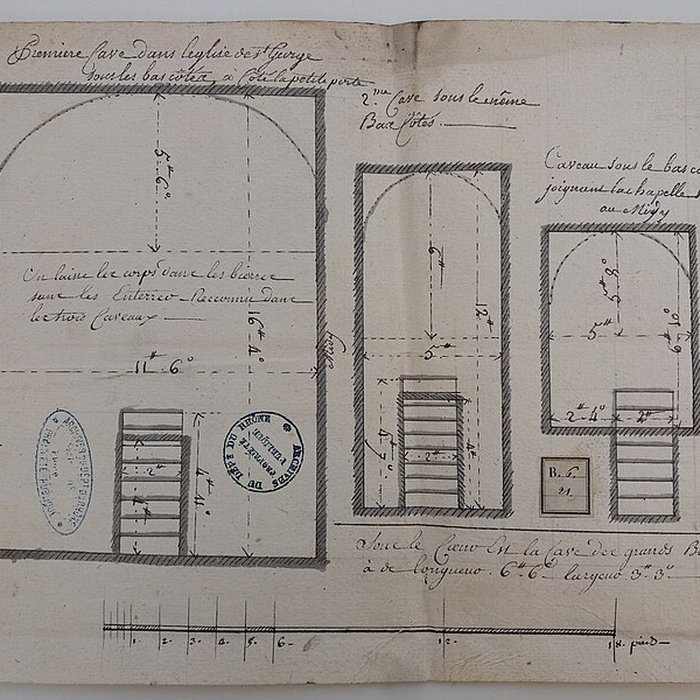 Premiere Cave dans leglise de St George
sous les bas cotéz, a Coté la petite porte
2.me Cave sous le même
Bas Côtés.
Caveau sous le bas co
joignant la chapelle
au Midy
5# 6°
On laisse les corps dans les bierres
sans les Enterrer Reconnu dans
les trois Caveaux
16# 4°
11# 6°
Midy
6#
12#
5#
4# 7°
2#
5# 8°
5#
6# 10°
2# 4°
2#
2#
4#
4# 11°
ARCHIVES DU DEPT DU RHÔNE
B. 6.
21.
Sous le Cœur Est la Cave des grands B
à de longueur. 6# 6° largeur 3# 3°.
1. 2. 3. 4. 5. 6. 12. 18. pieds